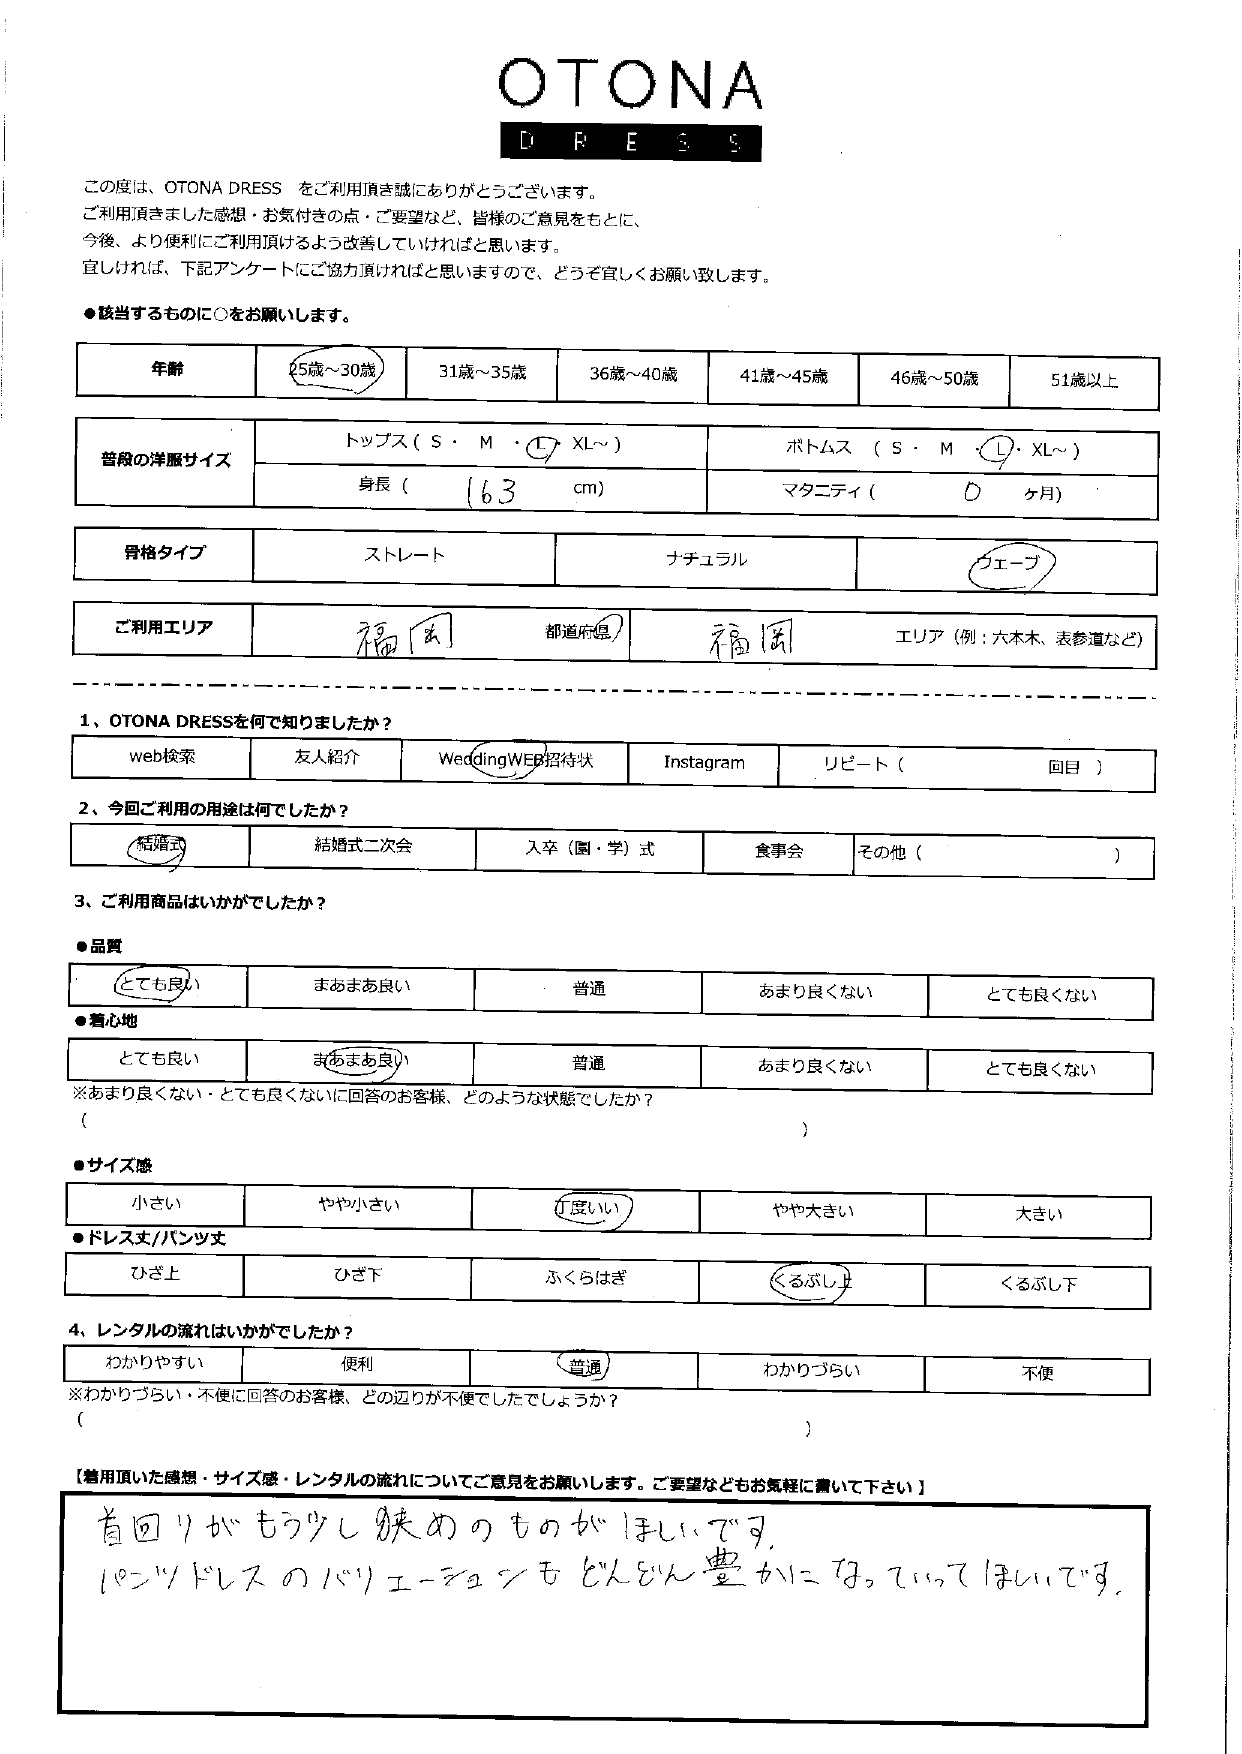 OTONA
DRESS
この度は、OTONA DRESS　をご利用頂き誠にありがとうございます。
ご利用頂きました感想・お気付きの点・ご要望など、皆様のご意見をもとに、
今後、より便利にご利用頂けるよう改善していければと思います。
宜しければ、下記アンケートにご協力頂ければと思いますので、どうぞ宜しくお願い致します。
●該当するものに○をお願いします。
年齢 25歳～30歳 31歳～35歳 36歳～40歳 41歳～45歳 46歳～50歳 51歳以上
普段の洋服サイズ
トップス ( S ・ M ・ L ・ XL～ ) ボトムス ( S ・ M ・ L ・ XL～ )
身長 ( 163 cm) マタニティ ( 0 ヶ月)
骨格タイプ ストレート ナチュラル ウェーブ
ご利用エリア 福岡 都道府県 福岡 エリア（例：六本木、表参道など）
1、OTONA DRESSを何で知りましたか？
web検索 友人紹介 WeddingWEB招待状 Instagram リピート ( 回目 )
2、今回ご利用の用途は何でしたか？
結婚式 結婚式二次会 入卒（園・学）式 食事会 その他 ( )
3、ご利用商品はいかがでしたか？
●品質
とても良い まあまあ良い 普通 あまり良くない とても良くない
●着心地
とても良い まあまあ良い 普通 あまり良くない とても良くない
※あまり良くない・とても良くないに回答のお客様、どのような状態でしたか？
( )
●サイズ感
小さい やや小さい 丁度いい やや大きい 大きい
●ドレス丈/パンツ丈
ひざ上 ひざ下 ふくらはぎ くるぶし上 くるぶし下
4、レンタルの流れはいかがでしたか？
わかりやすい 便利 普通 わかりづらい 不便
※わかりづらい・不便に回答のお客様、どの辺りが不便でしたでしょうか？
( )
【着用頂いた感想・サイズ感・レンタルの流れについてご意見をお願いします。ご要望などもお気軽に書いて下さい】
首回りがもう少し狭めのものがほしいです.
パンツドレスのバリエーションもどんどん豊かになっていってほしいです.